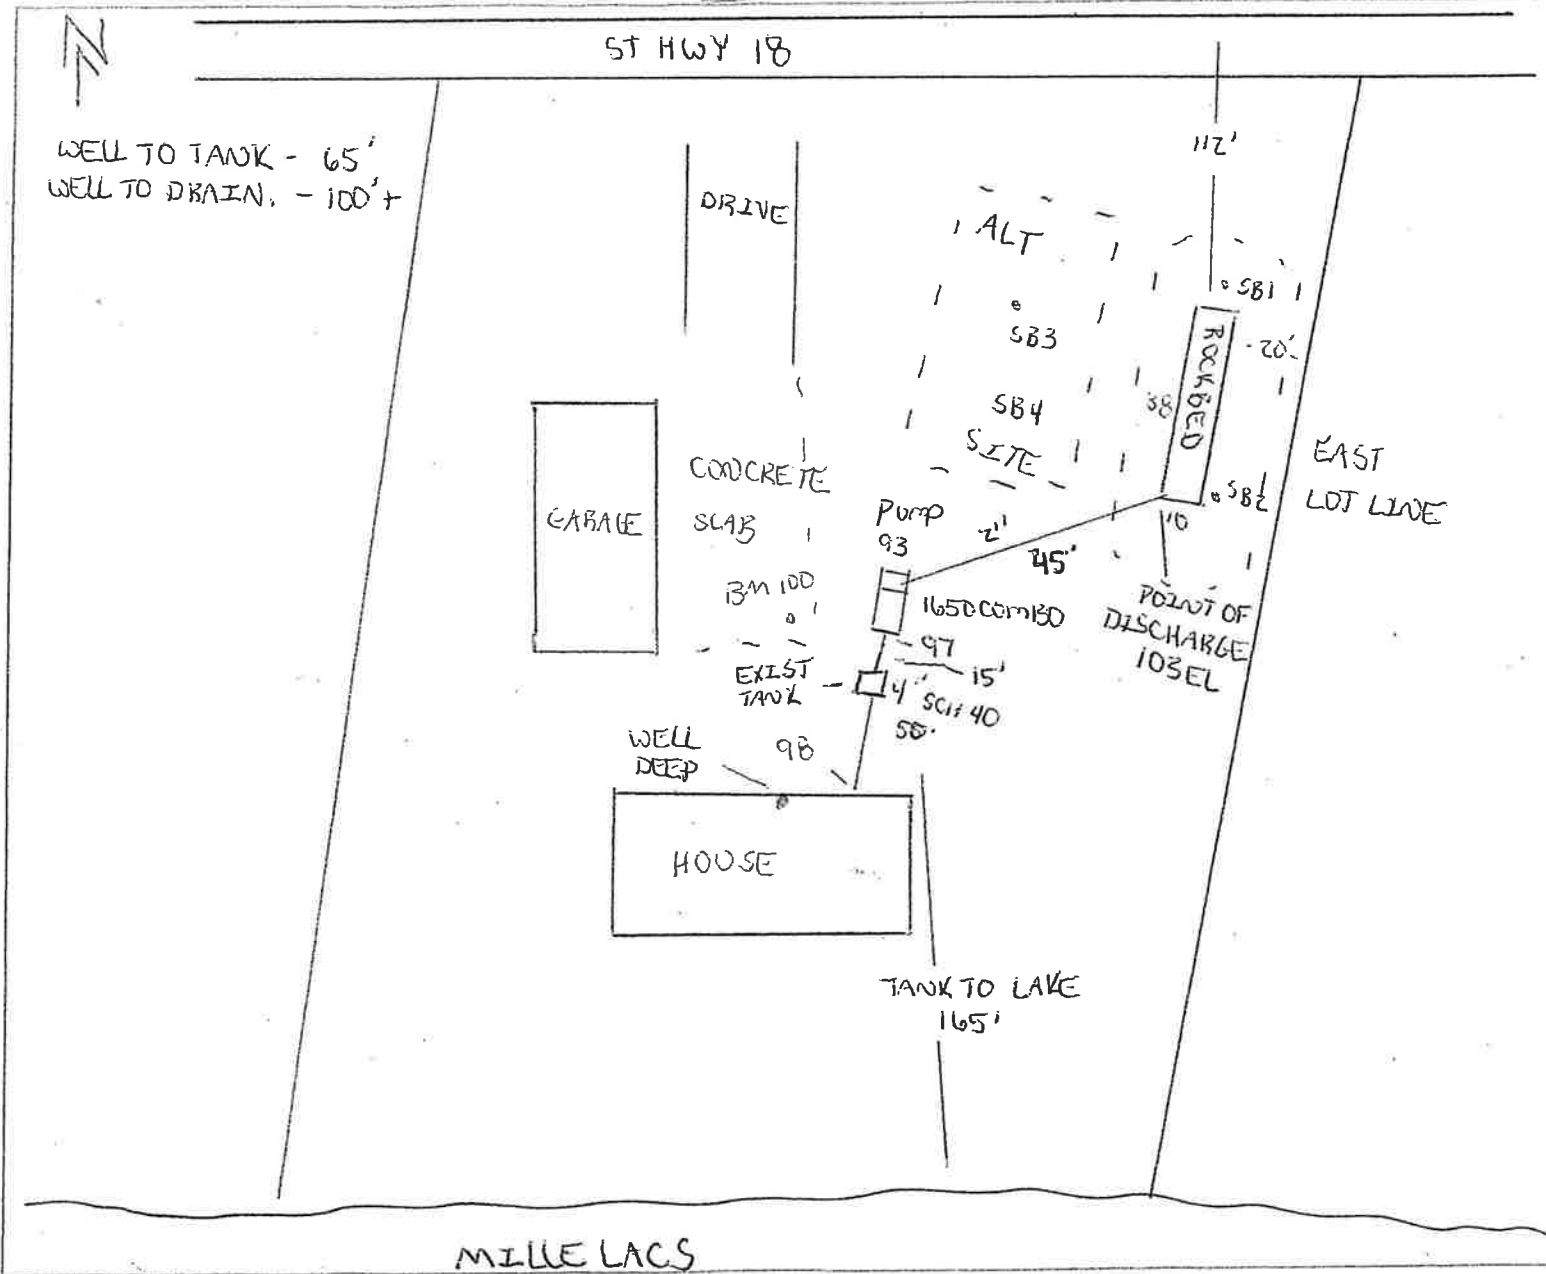 N
ST HWY 18
WELL TO TANK - 65'
WELL TO DRAIN. - 100'+
112'
DRIVE
ALT
SB1
SB3
ROCKBED
20'
38
SB4
SITE
EAST
LOT LINE
CONCRETE
SLAB
GARAGE
SB2
10
PUMP
93
2"
45'
BM 100
1650 COMBO
POINT OF
DISCHARGE
103 EL
97
15'
EXIST
TANK
4" SCH 40
WELL
DEEP
98
HOUSE
TANK TO LAKE
165'
MILLE LACS